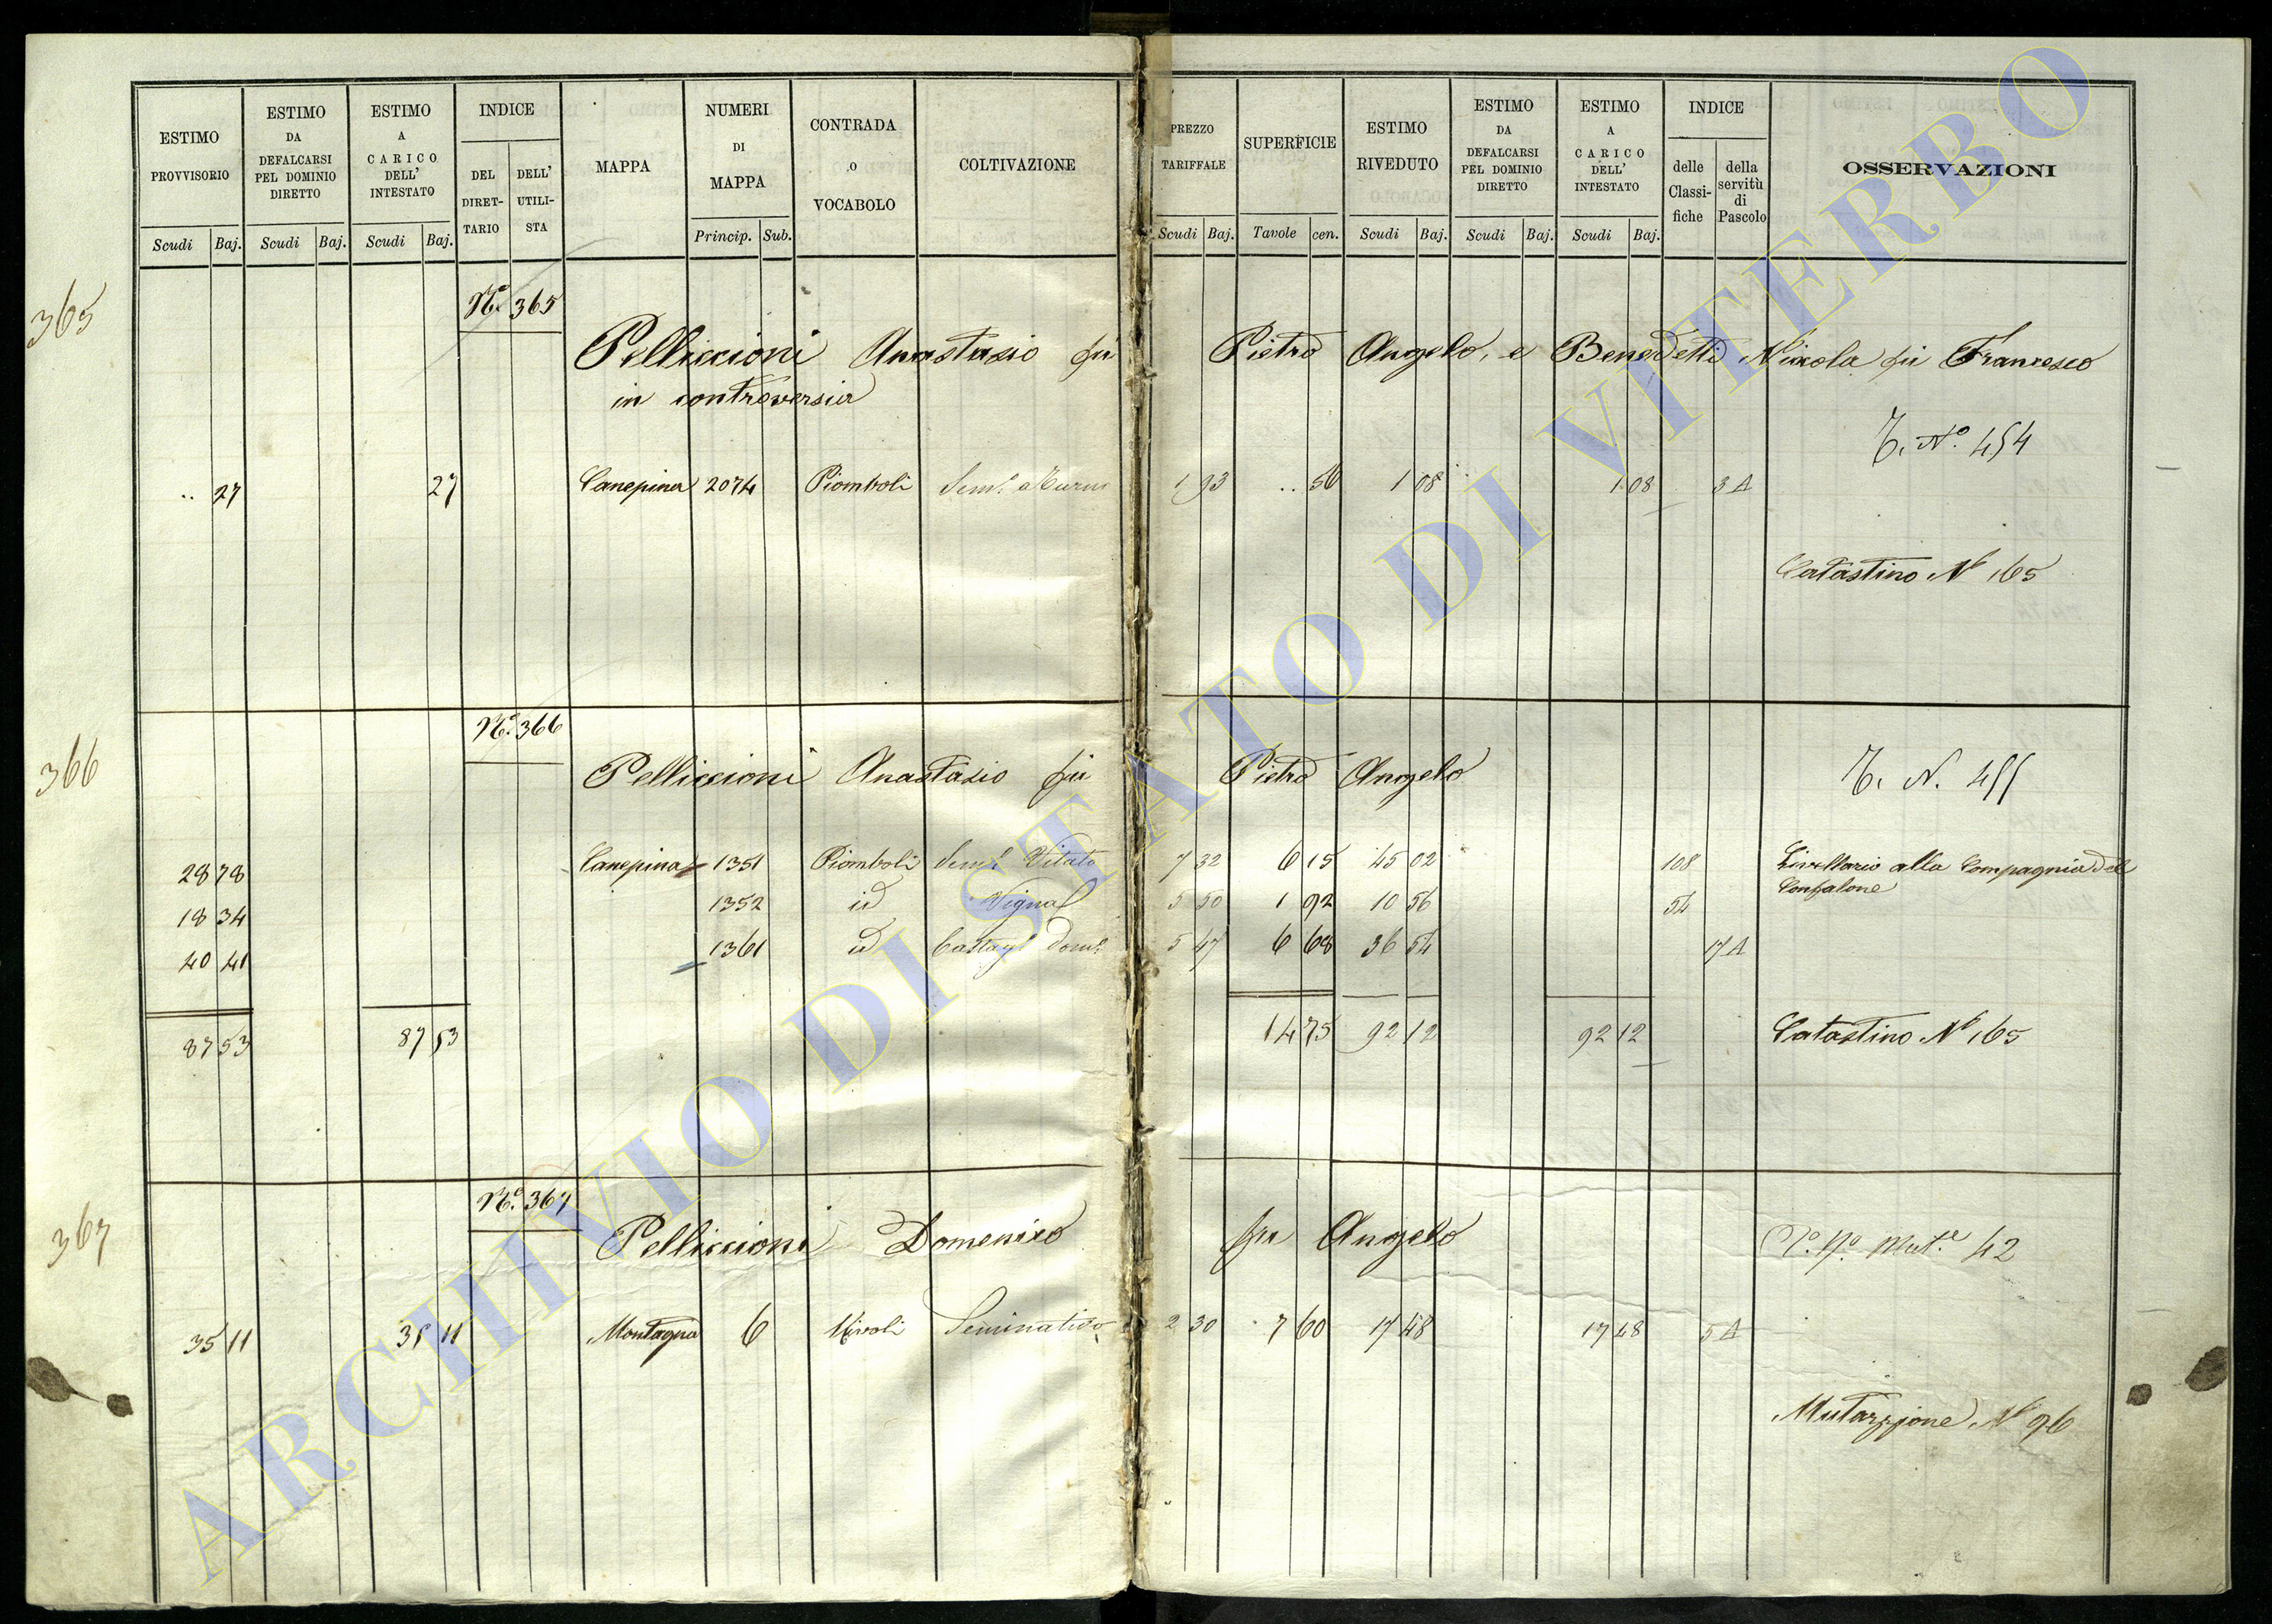 ESTIMO PROVVISORIO
ESTIMO DA DEFALCARSI PEL DOMINIO DIRETTO
ESTIMO A CARICO DELL' INTESTATO
INDICE
DEL DIRET-TARIO
DELL' UTILI-STA
MAPPA
NUMERI DI MAPPA
CONTRADA o VOCABOLO
COLTIVAZIONE
PREZZO TARIFFALE
SUPERFICIE
ESTIMO RIVEDUTO
ESTIMO DA DEFALCARSI PEL DOMINIO DIRETTO
ESTIMO A CARICO DELL' INTESTATO
INDICE
delle Classi-fiche
della servitù di Pascolo
OSSERVAZIONI
Scudi Baj. Scudi Baj. Scudi Baj. Princip. Sub. Scudi Baj. Tavole cen. Scudi Baj. Scudi Baj. Scudi Baj.
365
N.° 365
Pelliccioni Anastasio fu Pietro Angelo, e Benedetti Niccola fu Francesco
in controversia
T. N.° 454
.. 27 27 Canepina 2074 Piomboli 1 93 .. 56 1 08 1 08 3 A
Catastino N° 165
366
N.° 366
Pelliccioni Anastasio fu Pietro Angelo
T. N. 455
28 78 Canepina 1351 Piomboli Sem.° Vitato 7 32 6 15 45 02 108 Livellario alla Compagnia del
Confalone
18 34 1352 id Vigna 5 50 1 92 10 56 54
40 41 1361 id 5 47 6 68 36 54 17 A
87 53 87 53 14 75 92 12 92 12 Catastino N° 165
367
N.° 367
Pelliccioni Domenico fu Angelo
Mut.e 42
35 11 35 11 Montagna 6 Seminativo 2 30 7 60 17 48 17 48 5 A
Mutazzione N° 96
ARCHIVIO DI STATO DI VITERBO